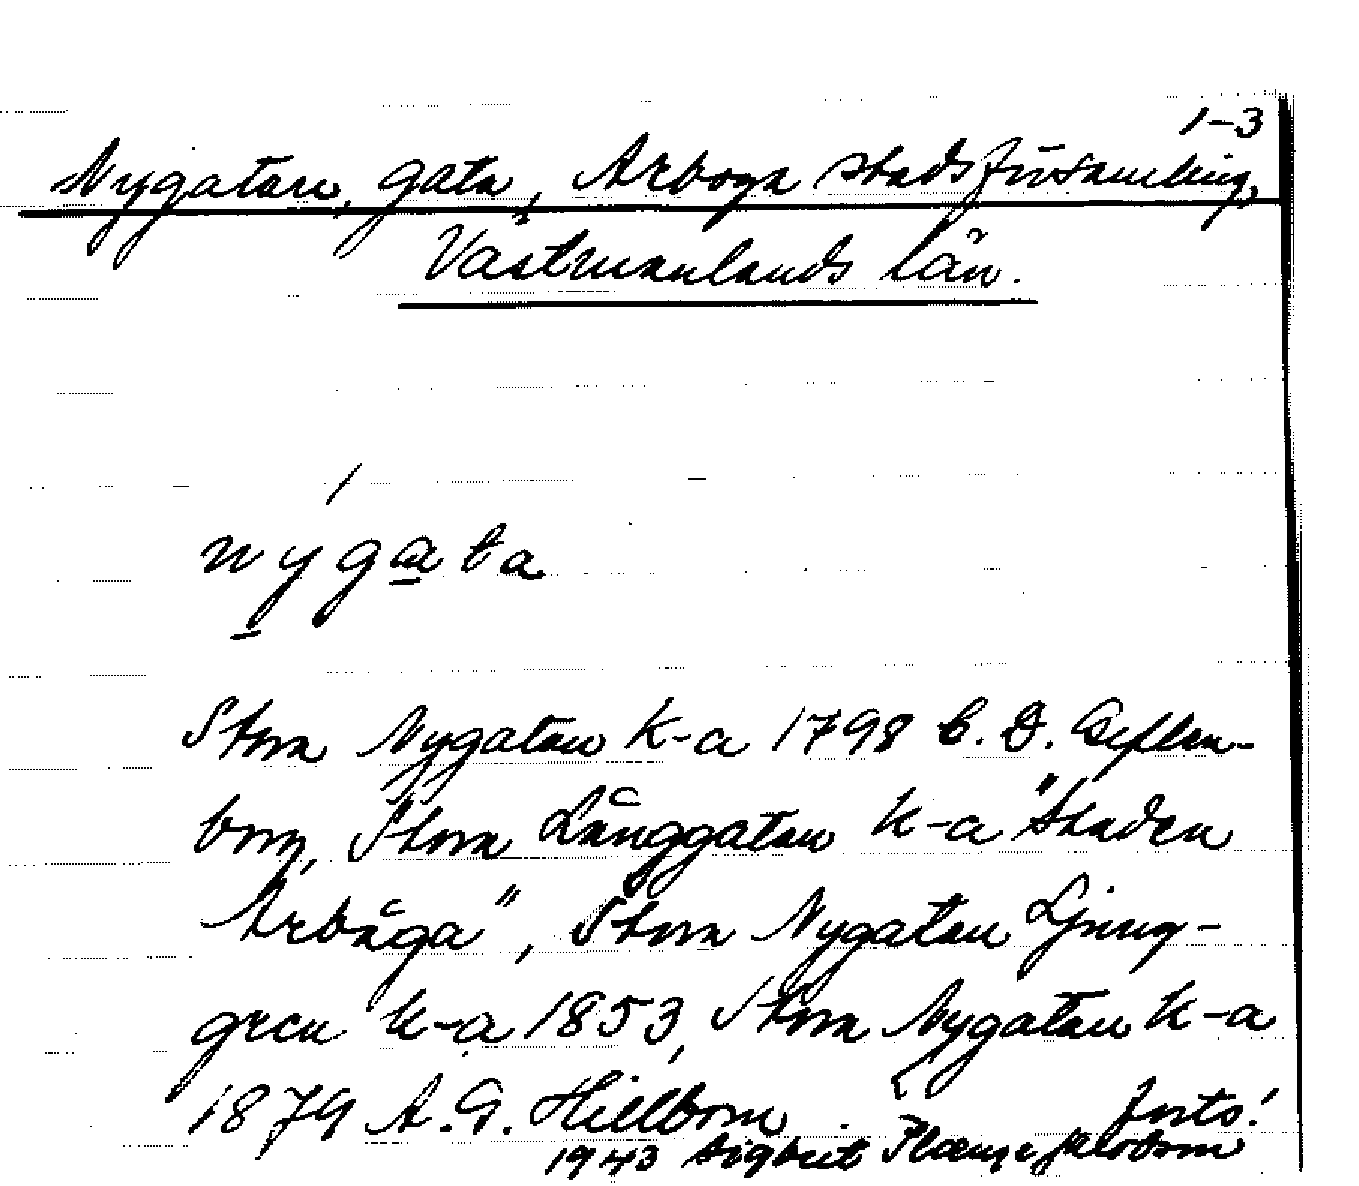 1-3
Nygatan, gata, Arboga stadsförsamling,
Västmanlands län.
/
nygata
Stora Nygatan k-a 1798 C. G.
borg, Stora Långgatan k-a "Staden
Arbåga", Stora Nygatan Ljung-
gren k-a 1853, Stora Nygatan k-a
1879 A. G. Hillbom forts!
1943 Sigbrit Plænge Jakobson